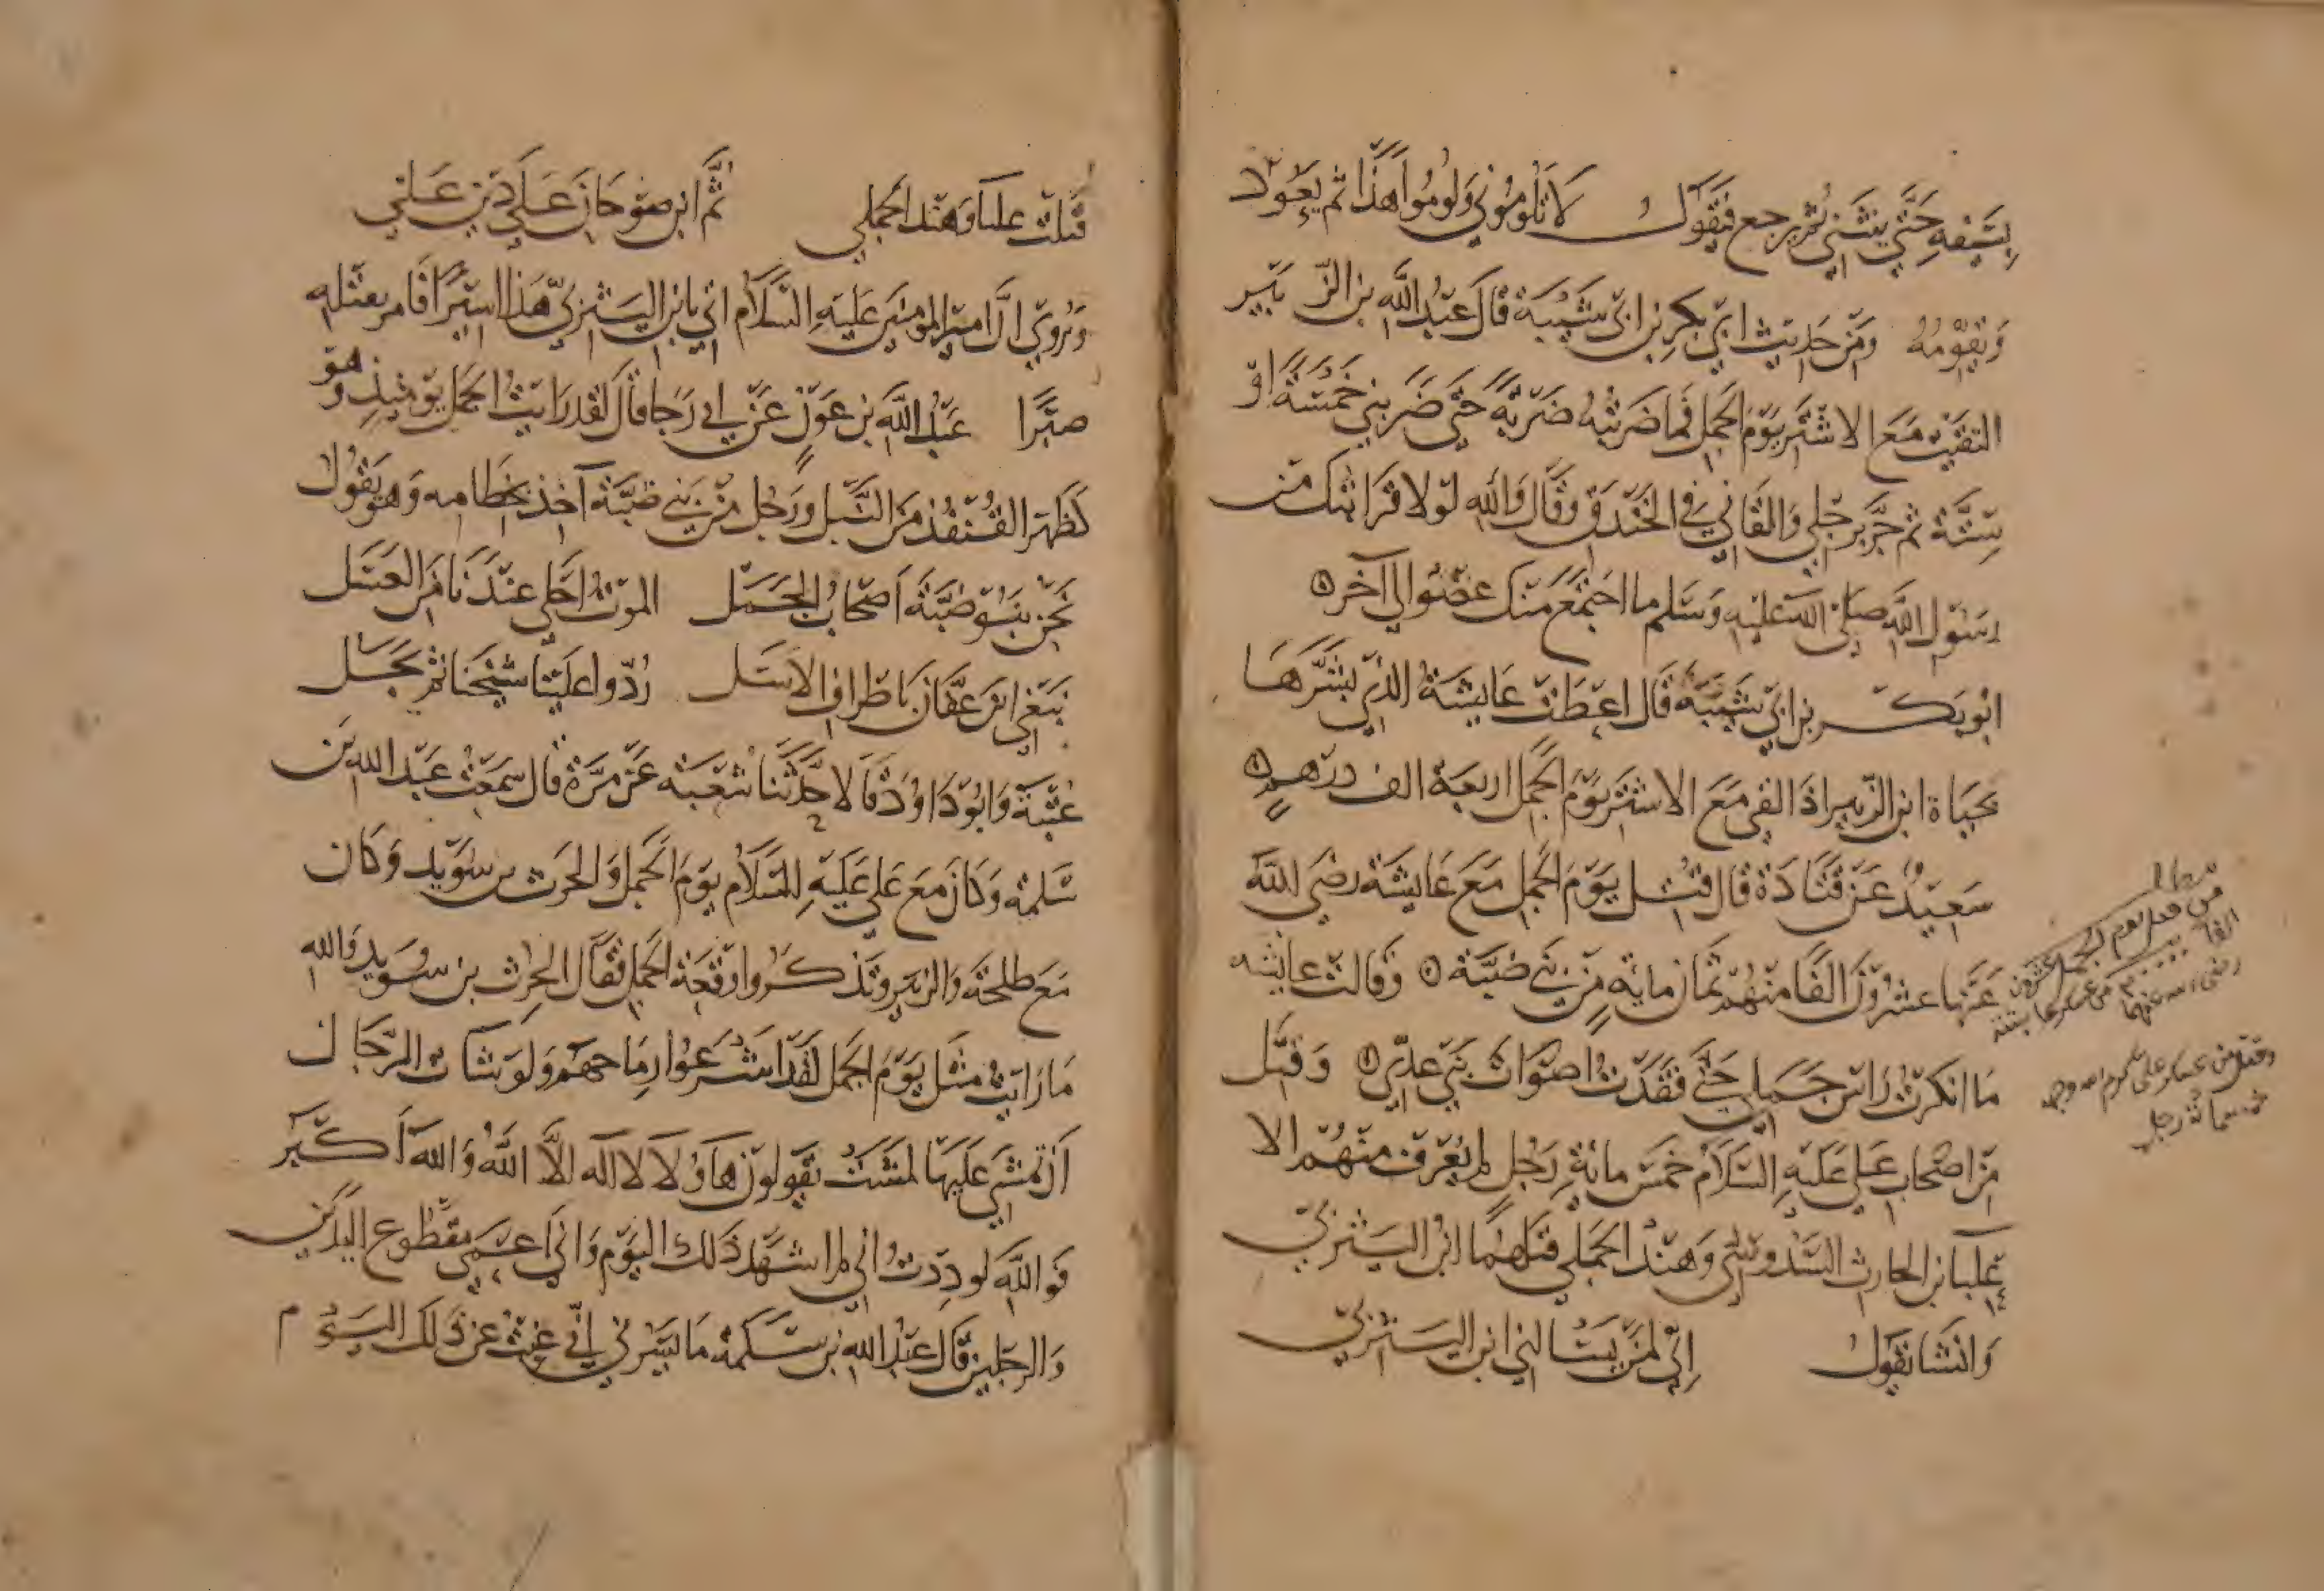 بسيفه حتى ينثني ثم يرجع فيقول لا تلوموني ولوموا هذا ثم يعود
ويقومه ومن حديث ابي بكر بن ابي شيبة قال عبد الله بن الزبير
التقيت مع الاشتر يوم الجمل فما ضربته ضربة حتى ضربني خمسة او
ستة ثم جر برجلي والقاني في الخندق وقال والله لولا قرابتك من
رسول الله صلى الله عليه وسلم ما اجتمع منك عضو الى آخر
ابو بكر بن ابي شيبة قال اعطت عايشة الذي بشرها
بحياة ابن الزبير اذ القي مع الاشتر يوم الجمل اربعة الف درهم
سعيد عن قتادة قال قتل يوم الجمل مع عايشة رضي الله
عنها عشرون الفا منهم ثمان ماية من بني ضبة وقالت عايشه
ما انكرت راس جملي حتى فقدت اصوات بني عدي وقتل
من اصحاب علي عليه السلام خمس مائة رجل لم يعرف منهم الا
علبا بن الحارث السدوسي وهند الجملي قتلهما ابن اليثربي
وانشا يقول اني لمن يسالني ابن اليثربي
مطلب
من قتل يوم الجمل عشرون
الفا من عسكر عايشة
رضي الله عنها
وقتل من عسكر علي كرم الله وجهه
خمسمائة رجل
قتلت علبا وهند الجملي ثم ابن صوحان على دين علي
وروي ان امير المومنين عليه السلام اتي بابن اليثربي هذا اسيرا فامر بقتله
صبرا عبد الله بن عون عن ابي رجا قال لقد رايت الجمل يومئذ وهو
كظهر القنفذ من النبل ورجل من بني ضبة آخذ بخطامه وهو يقول
نحن بنو ضبة اصحاب الجمل الموت احلى عندنا من العسل
نبغي ابن عفان باطراف الاسل ردوا علينا شيخنا ثم بجل
عتبة وابو داود قالا حدثنا شعبة عن مرة قال سمعت عبد الله بن
سلمة وكان مع علي عليه السلام يوم الجمل والحرث بن سويد وكان
مع طلحة والزبير وتذكروا وقعة الجمل فقال الحرث بن سويد والله
ما رايت مثل يوم الجمل لقد اشرعوا رماحهم ولو شات الرجال
ان تمشي عليها لمشت يقولون هاولا لا اله الا الله والله اكبر
فوالله لوددت اني لم اشهد ذلك اليوم واني اعمى مقطوع اليدين
والرجلين قال عبد الله بن سلمة ما يسرني اني غبت عن ذلك اليوم